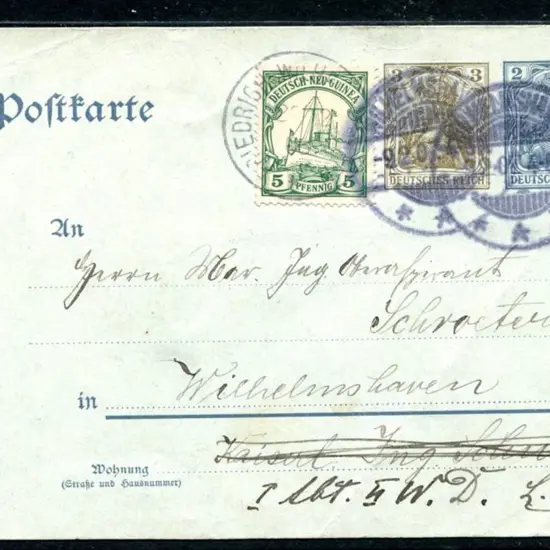 Postkarte
FRIEDRICH WILH
DEUTSCH-NEU-GUINEA
5 PFENNIG 5
3 3
DEUTSCHES REICH
2
DEUTSCHES
An
Herrn Mar. Ing Oberaspirant
Schroeter
in Wilhelmshaven
Kaiserl. Ing
Wohnung
(Straße und Hausnummer)
I Abt. II W. D.